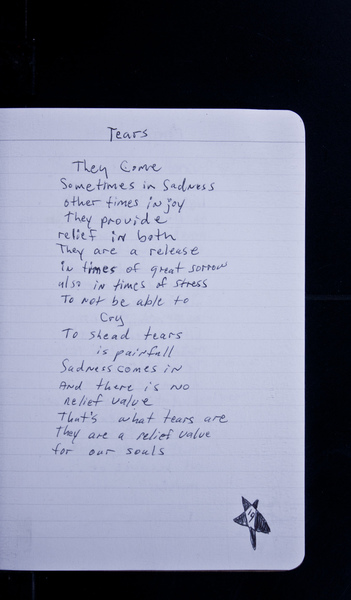 Tears
They Come
Sometimes in Sadness
other times in joy
They provide
relief in both
They are a release
in times of great sorrow
also in times of stress
To not be able to
Cry
To shead tears
is painfull
Sadness comes in
And there is no
relief value
That's what tears are
They are a relief value
for our souls